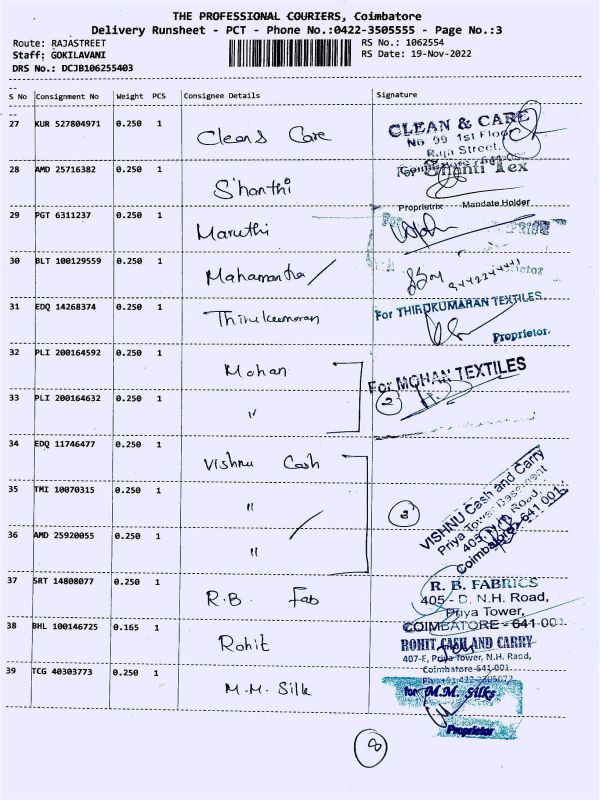 THE PROFESSIONAL COURIERS, Coimbatore
Delivery Runsheet - PCT - Phone No.:0422-3505555 - Page No.:3
Route: RAJASTREET RS No.: 1062554
Staff: GOKILAVANI RS Date: 19-Nov-2022
DRS No.: DCJB106255403
S No Consignment No Weight PCS Consignee Details Signature
27 KUR 527804971 0.250 1 Clean & Care CLEAN & CARE
No 99 1st Floor
Raja Street,
28 AMD 25716382 0.250 1 Shanthi For Shanti Tex
Proprietrix Mandate Holder
29 PGT 6311237 0.250 1 Maruthi
30 BLT 100129559 0.250 1 Mahamantra
31 EDQ 14268374 0.250 1 Thirukumaran For THIRUKUMARAN TEXTILES,
Proprietor.
32 PLI 200164592 0.250 1 Mohan For MOHAN TEXTILES
33 PLI 200164632 0.250 1 " 2
34 EDQ 11746477 0.250 1 Vishnu Cash VISHNU Cash and Carry
Priya Tower Basement
35 TMI 10070315 0.250 1 " 3 403, N.H. Road,
Coimbatore-641 001.
36 AMD 25920055 0.250 1 "
37 SRT 14808077 0.250 1 R.B. Fab R. B. FABRICS
405 - D, N.H. Road,
Priya Tower,
COIMBATORE - 641 001
38 BHL 100146725 0.165 1 Rohit ROHIT CASH AND CARRY
407-E, Priya Tower, N.H. Road,
Coimbatore-641 001.
39 TCG 40303773 0.250 1 M.M. Silk for M.M. Silks
Proprietor
8